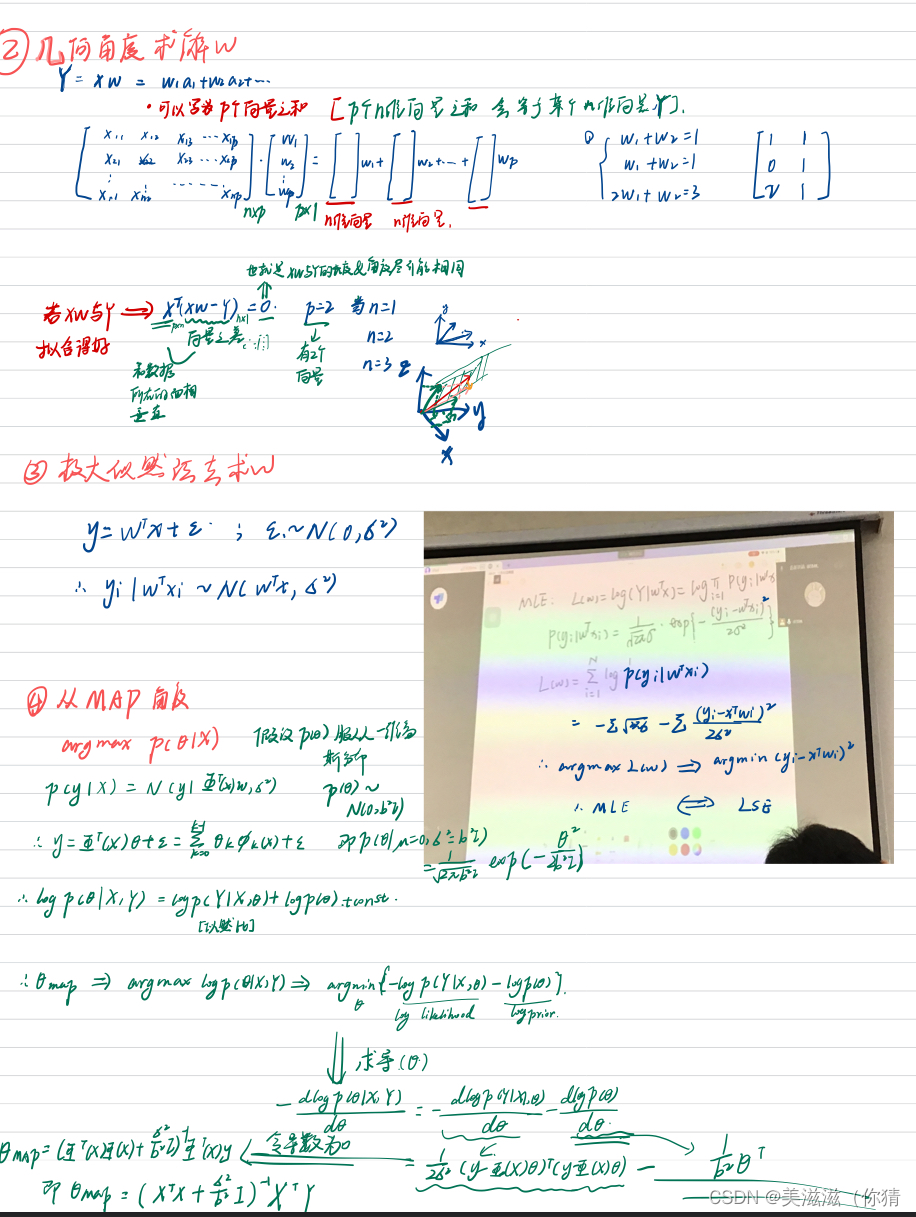 ② 几何角度求解W
Y = XW = w₁a₁+w₂a₂+…
· 可以写为p个向量之和 [p个n维向量之和 会等于某个n维向量Y].
[x₁₁ x₁₂ x₁₃ … x₁p
x₂₁ x₂₂ x₂₃ … x₂p
⋮ ⋮ ……
xn₁ xn₂ xnp] · [w₁ w₂ ⋮ wp] = [ ] w₁ + [ ] w₂ + … + [ ] wp
n×p p×1 n维向量 n维向量.
① { w₁+w₂=1
w₁+w₂=1
2w₁+w₂=3
[1 1
0 1
2 1]
也就是XW与Y的长度及角度尽可能相同
若XW与Y ⟹ Xᵀ(XW-Y) = 0. p=2 当n=1
拟合得好
p×n n×1
向量之差
有2个
向量
n=2
n=3
y
x
z
y
x
和数据
所在的面相
垂直
③ 极大似然法去求W
y = Wᵀx + ε ; ε ~ N(0, σ²)
∴ yi | Wᵀxi ~ N(Wᵀx, σ²)
MLE: L(w) = log(Y|wᵀx) = log π i=1 p(yi|wᵀx
P(yi|wᵀxi) = 1/√2πσ · exp{-(yi-wᵀxi)²/2σ²}
L(w) = Σ i=1 N log p(yi|wᵀxi)
= -Σ√2πσ - Σ (yi-xᵀwi)²/2σ²
∴ argmax L(w) ⟹ argmin (yi-xᵀwi)²
∴ MLE ⟺ LSE
④ 从MAP角度
argmax p(θ|X)
假设p(θ)服从一维高
斯分布
p(θ) ~
N(0, b²I)
p(y|X) = N(y | Φᵀ(x)w, σ²)
∴ y = Φᵀ(x)θ + ε = Σ k=0 k-1 θk φk(x) + ε
即p(θ|μ=0, σ²=b²I)
= 1/√2πb²I exp(-θ²/2b²I)
∴ log p(θ|X,Y) = log p(Y|X,θ) + log p(θ) + const.
∴ θmap ⟹ argmax log p(θ|X,Y) ⟹ argmin θ {-log p(Y|X,θ) - log p(θ)}.
log likelihood log prior.
求导(θ)
- dlog p(θ|X,Y)/dθ = - dlog p(Y|X,θ)/dθ - dlog p(θ)/dθ
θmap = (Φᵀ(x)Φ(x) + σ²/b² I)⁻¹ Φᵀ(x)y 令导数为0 = 1/2σ² (y-Φ(x)θ)ᵀ(y-Φ(x)θ) - 1/b² θᵀ
即 θmap = (XᵀX + σ²/b² I)⁻¹ XᵀY
CSDN @美滋滋（你猜